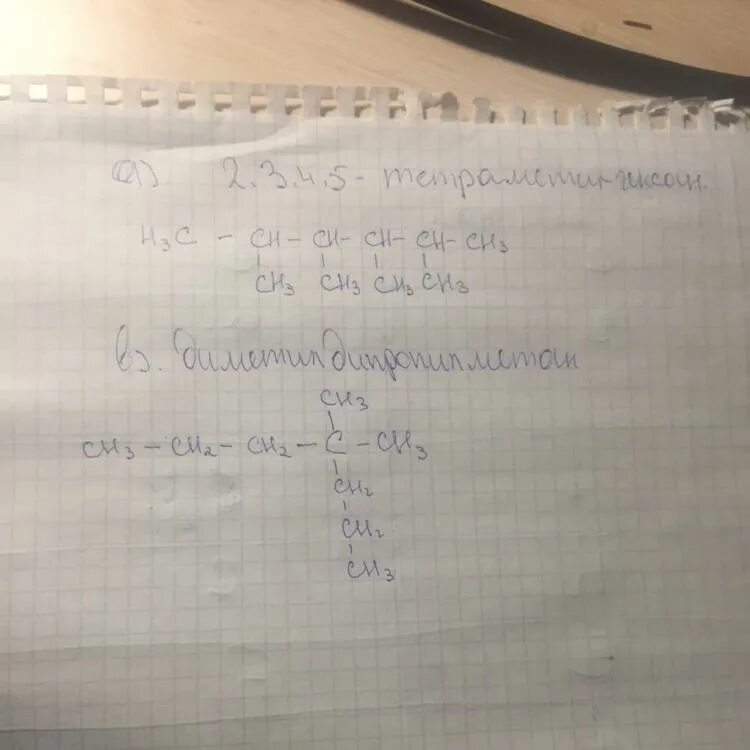 а). 2,3,4,5 - тетраметилгексан.
H₃C - CH - CH - CH - CH - CH₃
CH₃ CH₃ CH₃ CH₃
в). диметилдипропилметан
CH₃
CH₃ - CH₂ - CH₂ - C - CH₃
CH₂
CH₂
CH₃